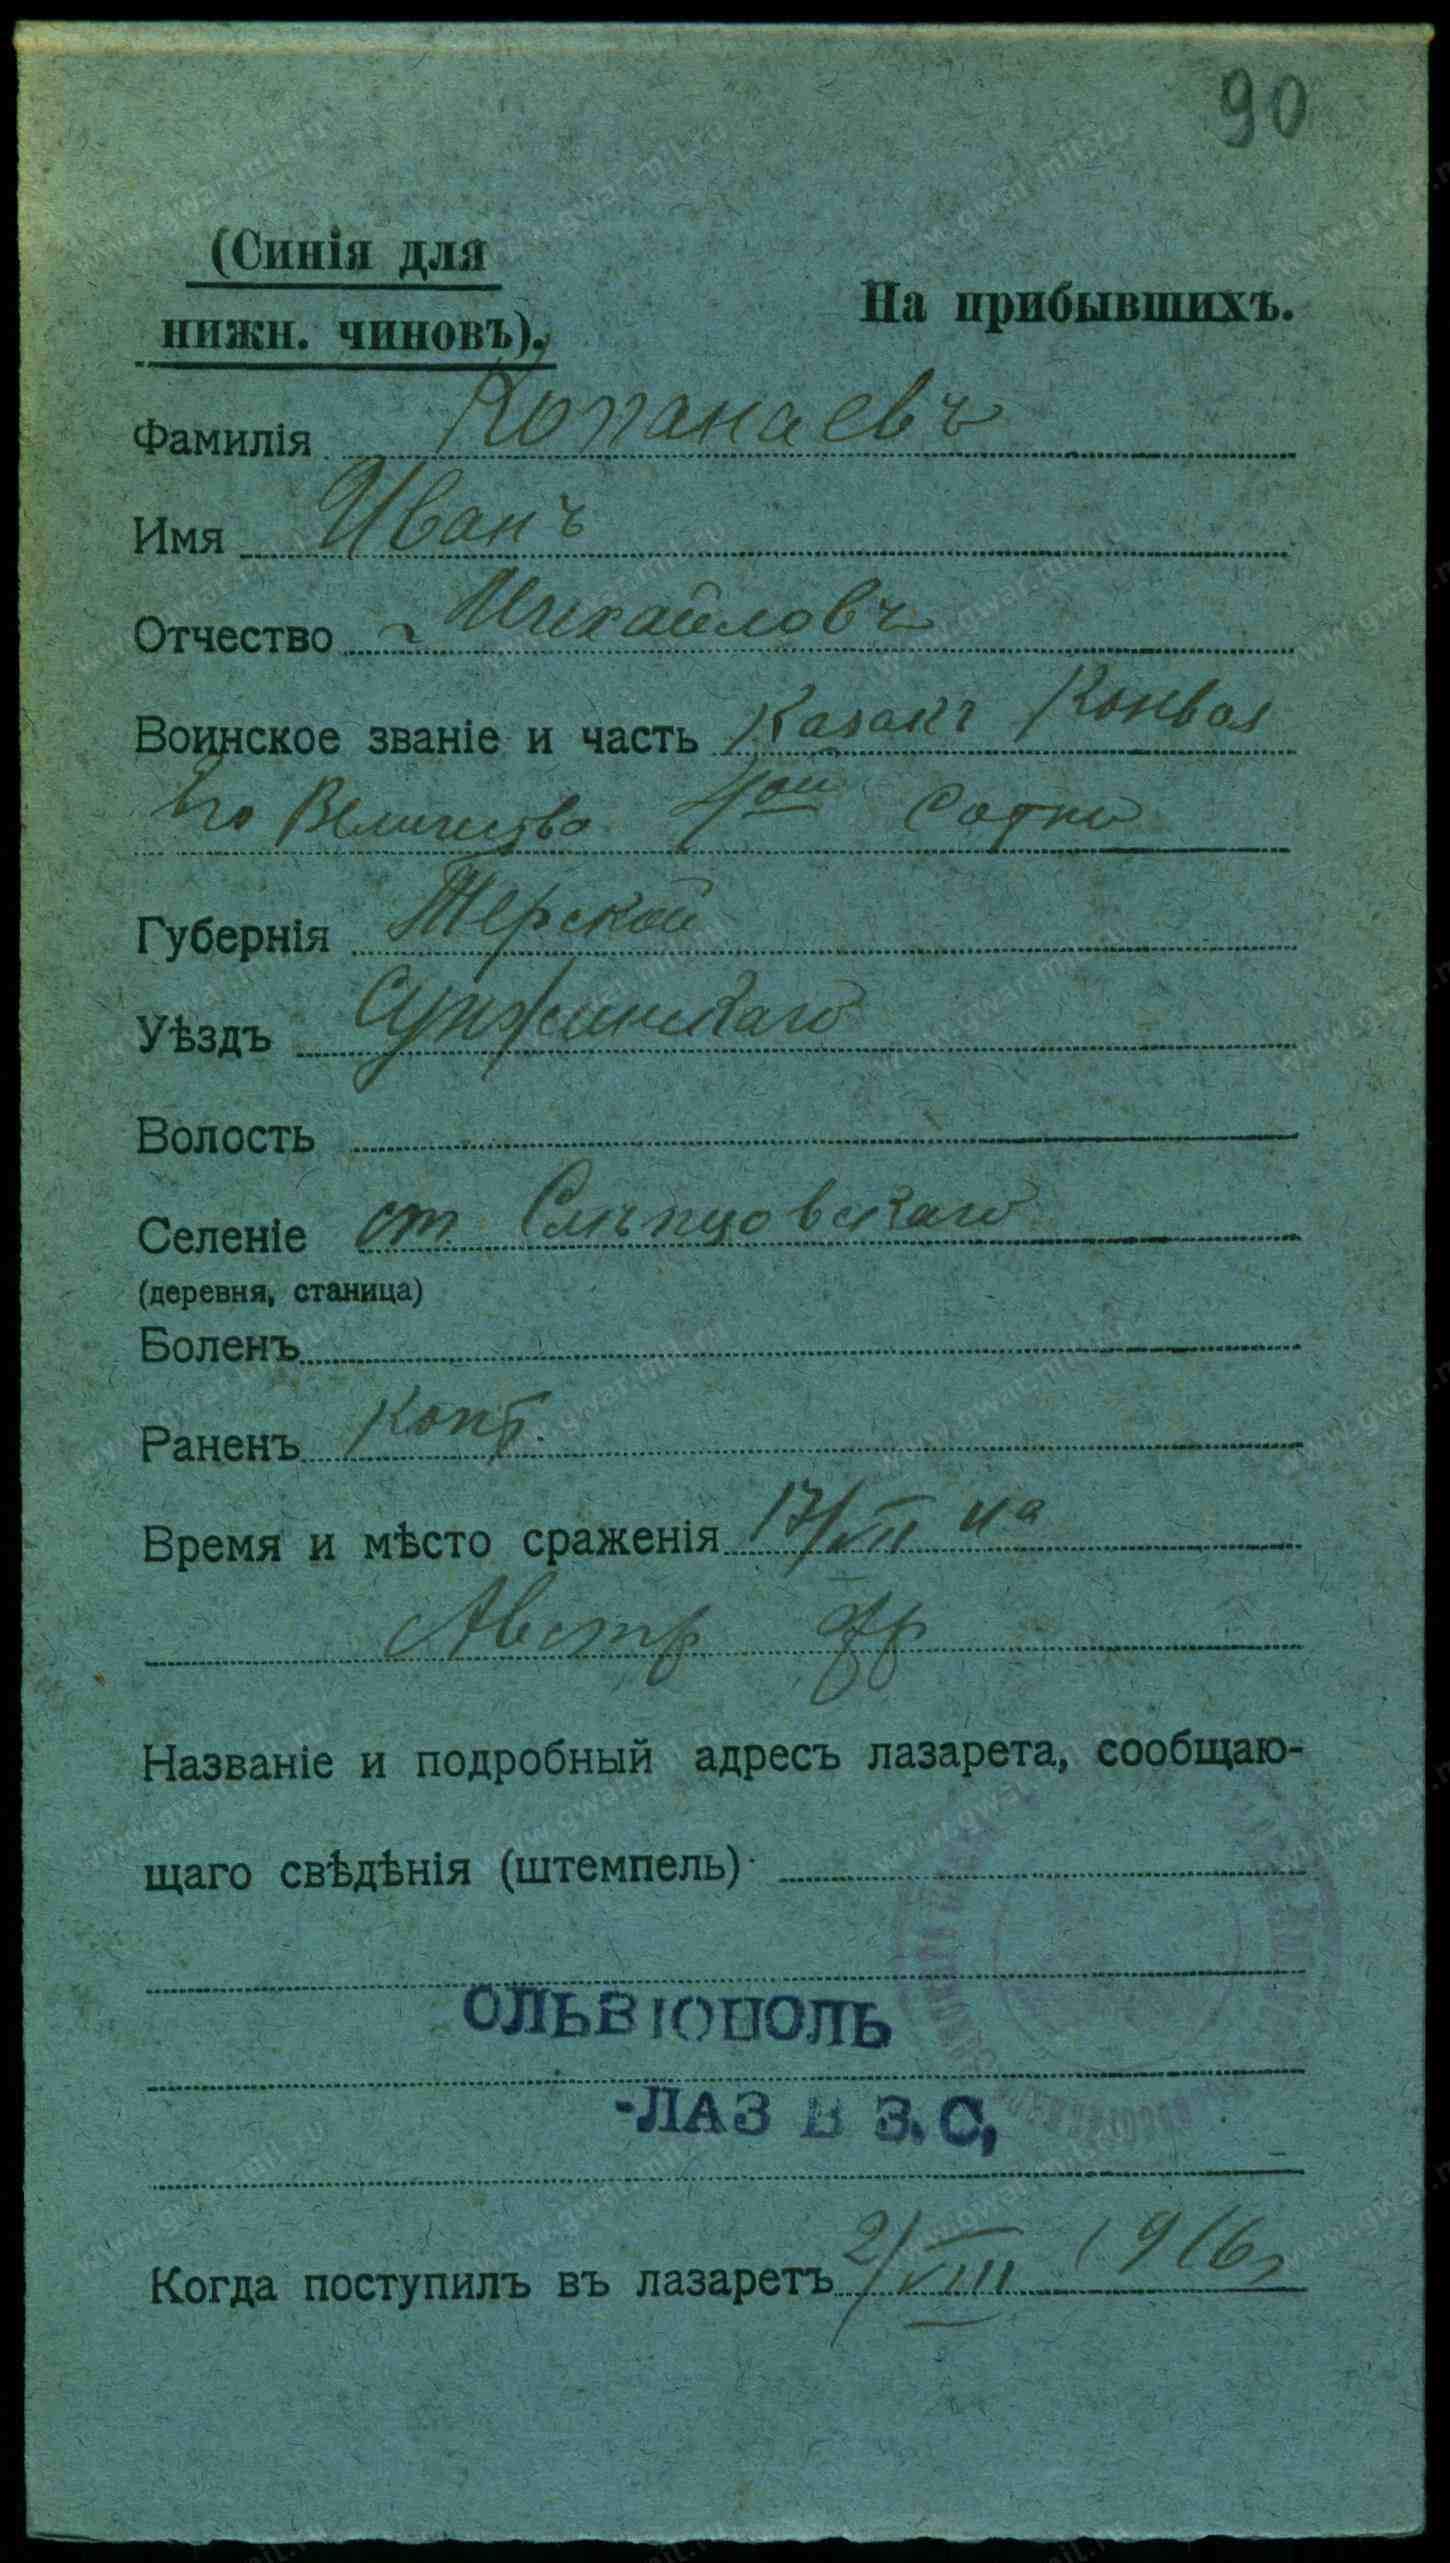 90
(Синія для
нижн. чиновъ).
На прибывшихъ.
Фамилія Копанаевъ
Имя Иванъ
Отчество Михайловъ
Воинское званіе и часть Казакъ Конвоя
Его Величества 4ой Сотни
Губернія Терской
Уѣздъ Сунженскаго
Волость
Селеніе ст. Слѣпцовскаго
(деревня, станица)
Боленъ
Раненъ конт.
Время и мѣсто сраженія 17/VII на
Австр фр
Названіе и подробный адресъ лазарета, сообщаю-
щаго свѣдѣнія (штемпель)
ОЛЬВІОПОЛЬ
-ЛАЗ В З. С,
Когда поступилъ въ лазаретъ 2/VIII 1916,